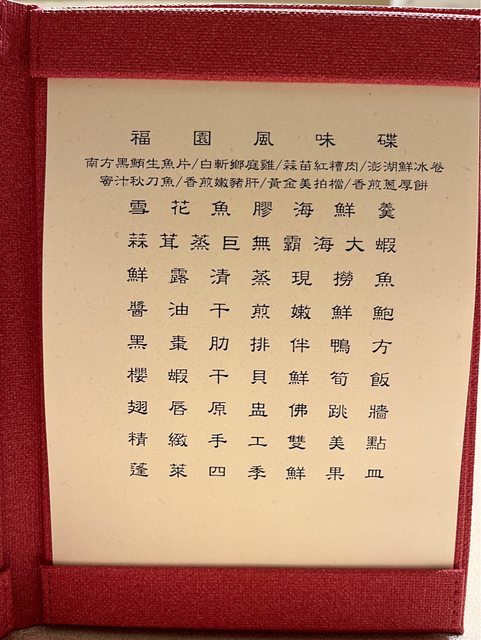 福園風味碟
南方黑鮪生魚片/白斬鄉庭雞/蒜苗紅糟肉/澎湖鮮冰卷
蜜汁秋刀魚/香煎嫩豬肝/黃金美拍檔/香煎蔥厚餅
雪花魚膠海鮮羹
蒜茸蒸巨無霸海大蝦
鮮露清蒸現撈魚
醬油干煎嫩鮮鮑
黑棗肋排伴鴨方
櫻蝦干貝鮮筍飯
翅唇原盅佛跳牆
精緻手工雙美點
蓬萊四季鮮果皿